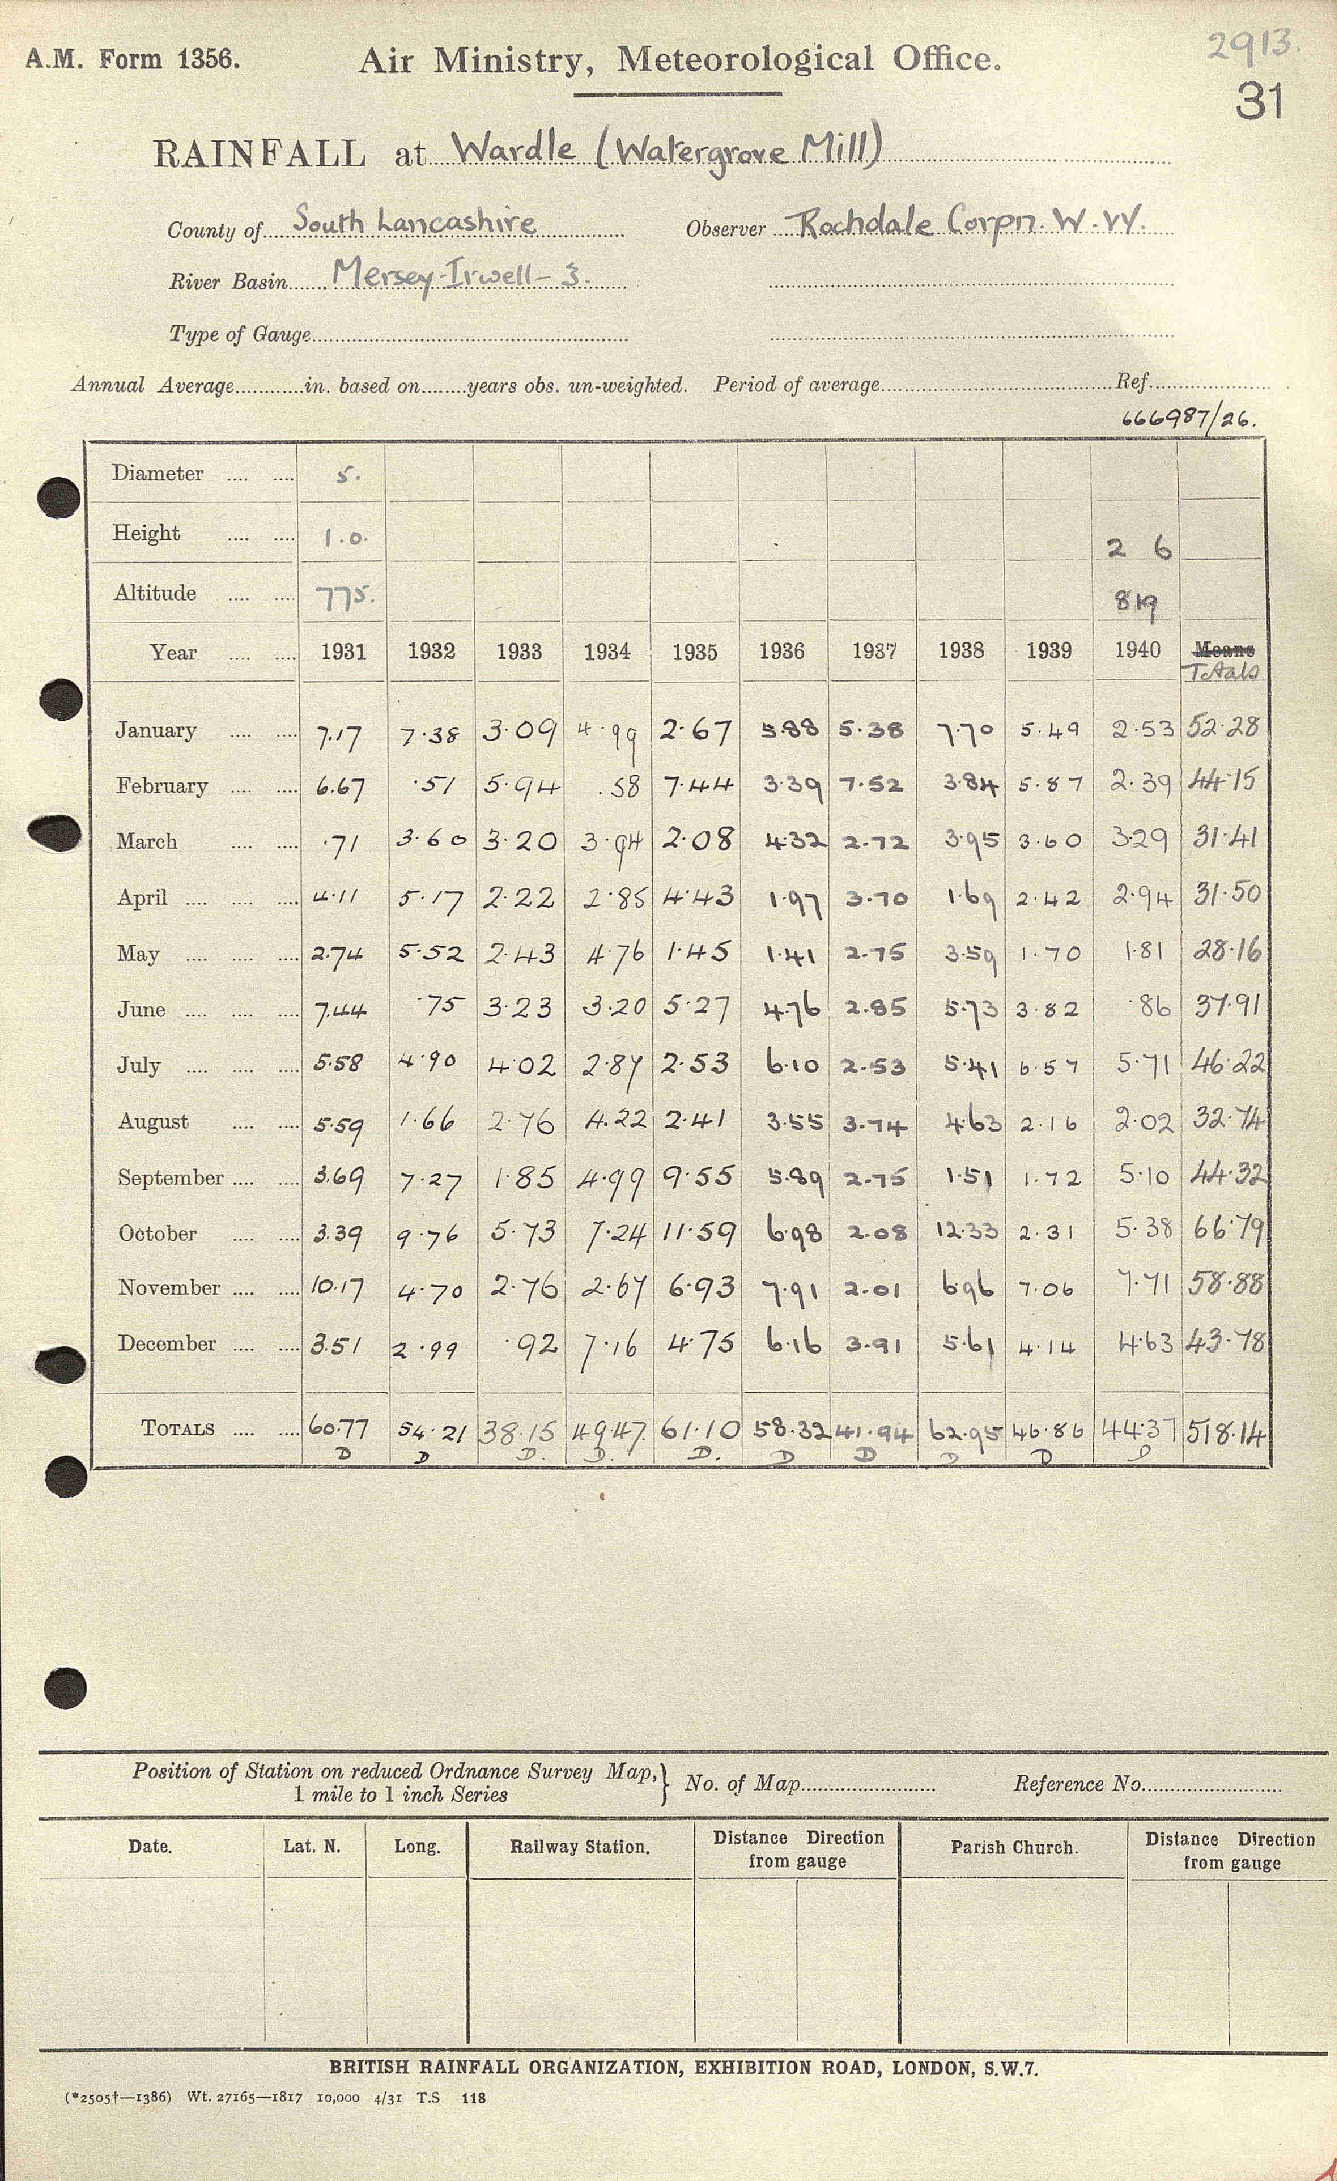 2913.
A.M. Form 1356. Air Ministry, Meteorological Office.
31
RAINFALL at Wardle (Watergrove Mill)
County of South Lancashire Observer Rochdale Corpn. W.W.
River Basin Mersey-Irwell-3.
Type of Gauge
Annual Average in. based on years obs. un-weighted. Period of average Ref.
666987/26.
Diameter 5.
Height 1.0. 2 6
Altitude 775. 819
Year 1931 1932 1933 1934 1935 1936 1937 1938 1939 1940 Means
Totals
January 7.17 7.38 3.09 4.99 2.67 5.88 5.38 7.70 5.49 2.53 52.28
February 6.67 .51 5.94 .58 7.44 3.39 7.52 3.84 5.87 2.39 44.15
March .71 3.60 3.20 3.94 2.08 4.32 2.72 3.95 3.60 3.29 31.41
April 4.11 5.17 2.22 2.85 4.43 1.97 3.70 1.69 2.42 2.94 31.50
May 2.74 5.52 2.43 4.76 1.45 1.41 2.75 3.59 1.70 1.81 28.16
June 7.44 .75 3.23 3.20 5.27 4.76 2.85 5.73 3.82 .86 37.91
July 5.58 4.90 4.02 2.87 2.53 6.10 2.53 5.41 6.57 5.71 46.22
August 5.59 1.66 2.76 4.22 2.41 3.55 3.74 4.63 2.16 2.02 32.74
September 3.69 7.27 1.85 4.99 9.55 5.89 2.75 1.51 1.72 5.10 44.32
October 3.39 9.76 5.73 7.24 11.59 6.98 2.08 12.33 2.31 5.38 66.79
November 10.17 4.70 2.76 2.67 6.93 7.91 2.01 6.96 7.06 7.71 58.88
December 3.51 2.99 .92 7.16 4.75 6.16 3.91 5.61 4.14 4.63 43.78
TOTALS 60.77 54.21 38.15 49.47 61.10 58.32 41.94 62.95 46.86 44.37 518.14
D D D. D. D. D D D D D
Position of Station on reduced Ordnance Survey Map,} No. of Map Reference No.
1 mile to 1 inch Series
Date. Lat. N. Long. Railway Station. Distance Direction from gauge Parish Church. Distance Direction from gauge
BRITISH RAINFALL ORGANIZATION, EXHIBITION ROAD, LONDON, S.W.7.
(*2505†—1386) Wt. 27165—1817 10,000 4/31 T.S 118